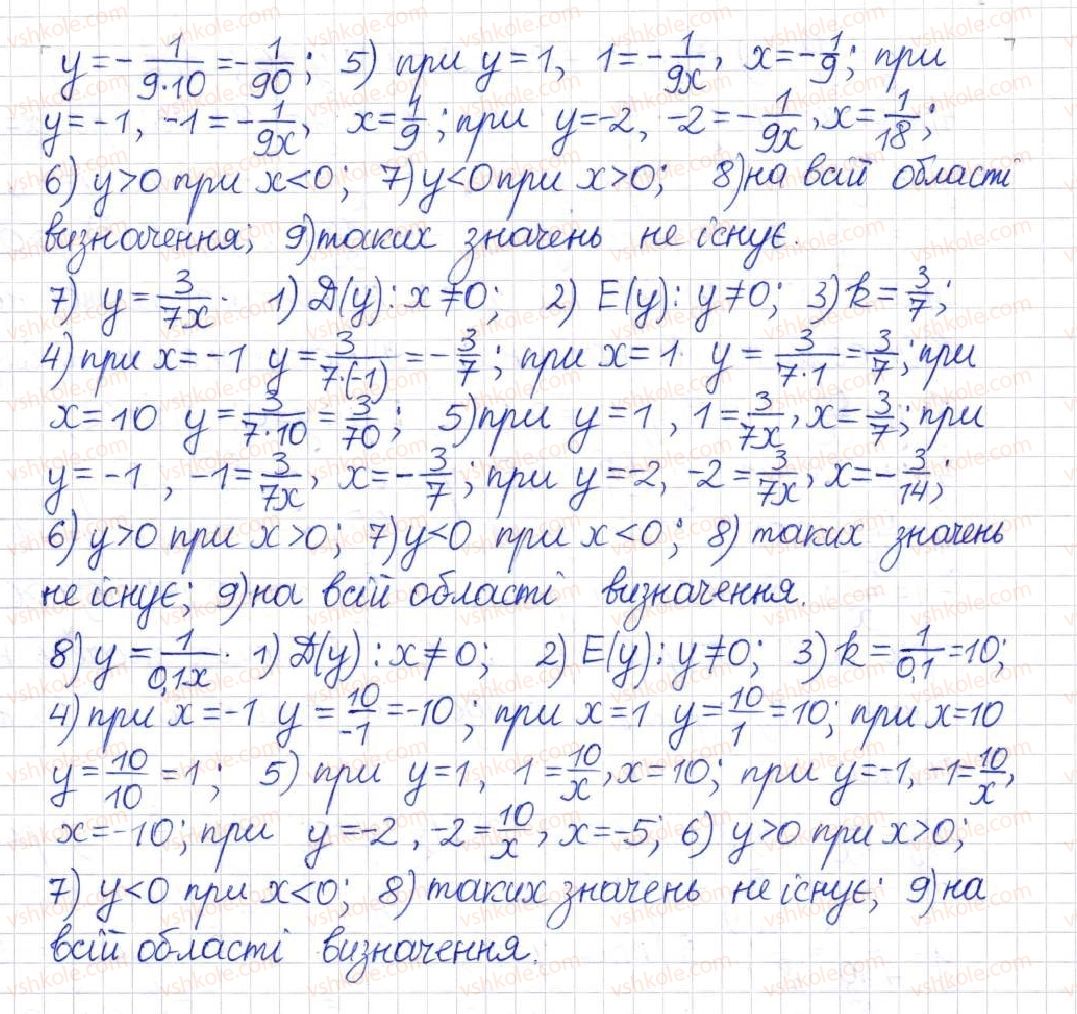 y = -1/(9·10) = -1/90; 5) при y = 1, 1 = -1/(9x), x = -1/9; при
y = -1, -1 = -1/(9x), x = 1/9; при y = -2, -2 = -1/(9x), x = 1/18;
6) y > 0 при x < 0; 7) y < 0 при x > 0; 8) на всій області
визначення; 9) таких значень не існує.
7) y = 3/(7x). 1) D(y): x ≠ 0; 2) E(y): y ≠ 0; 3) k = 3/7;
4) при x = -1 y = 3/(7·(-1)) = -3/7; при x = 1 y = 3/(7·1) = 3/7; при
x = 10 y = 3/(7·10) = 3/70; 5) при y = 1, 1 = 3/(7x), x = 3/7; при
y = -1, -1 = 3/(7x), x = -3/7; при y = -2, -2 = 3/(7x), x = -3/14;
6) y > 0 при x > 0; 7) y < 0 при x < 0; 8) таких значень
не існує; 9) на всій області визначення.
8) y = 1/(0,1x). 1) D(y): x ≠ 0; 2) E(y): y ≠ 0; 3) k = 1/0,1 = 10;
4) при x = -1 y = 10/-1 = -10; при x = 1 y = 10/1 = 10; при x = 10
y = 10/10 = 1; 5) при y = 1, 1 = 10/x, x = 10; при y = -1, -1 = 10/x,
x = -10; при y = -2, -2 = 10/x, x = -5; 6) y > 0 при x > 0;
7) y < 0 при x < 0; 8) таких значень не існує; 9) на
всій області визначення.
vshkole.com